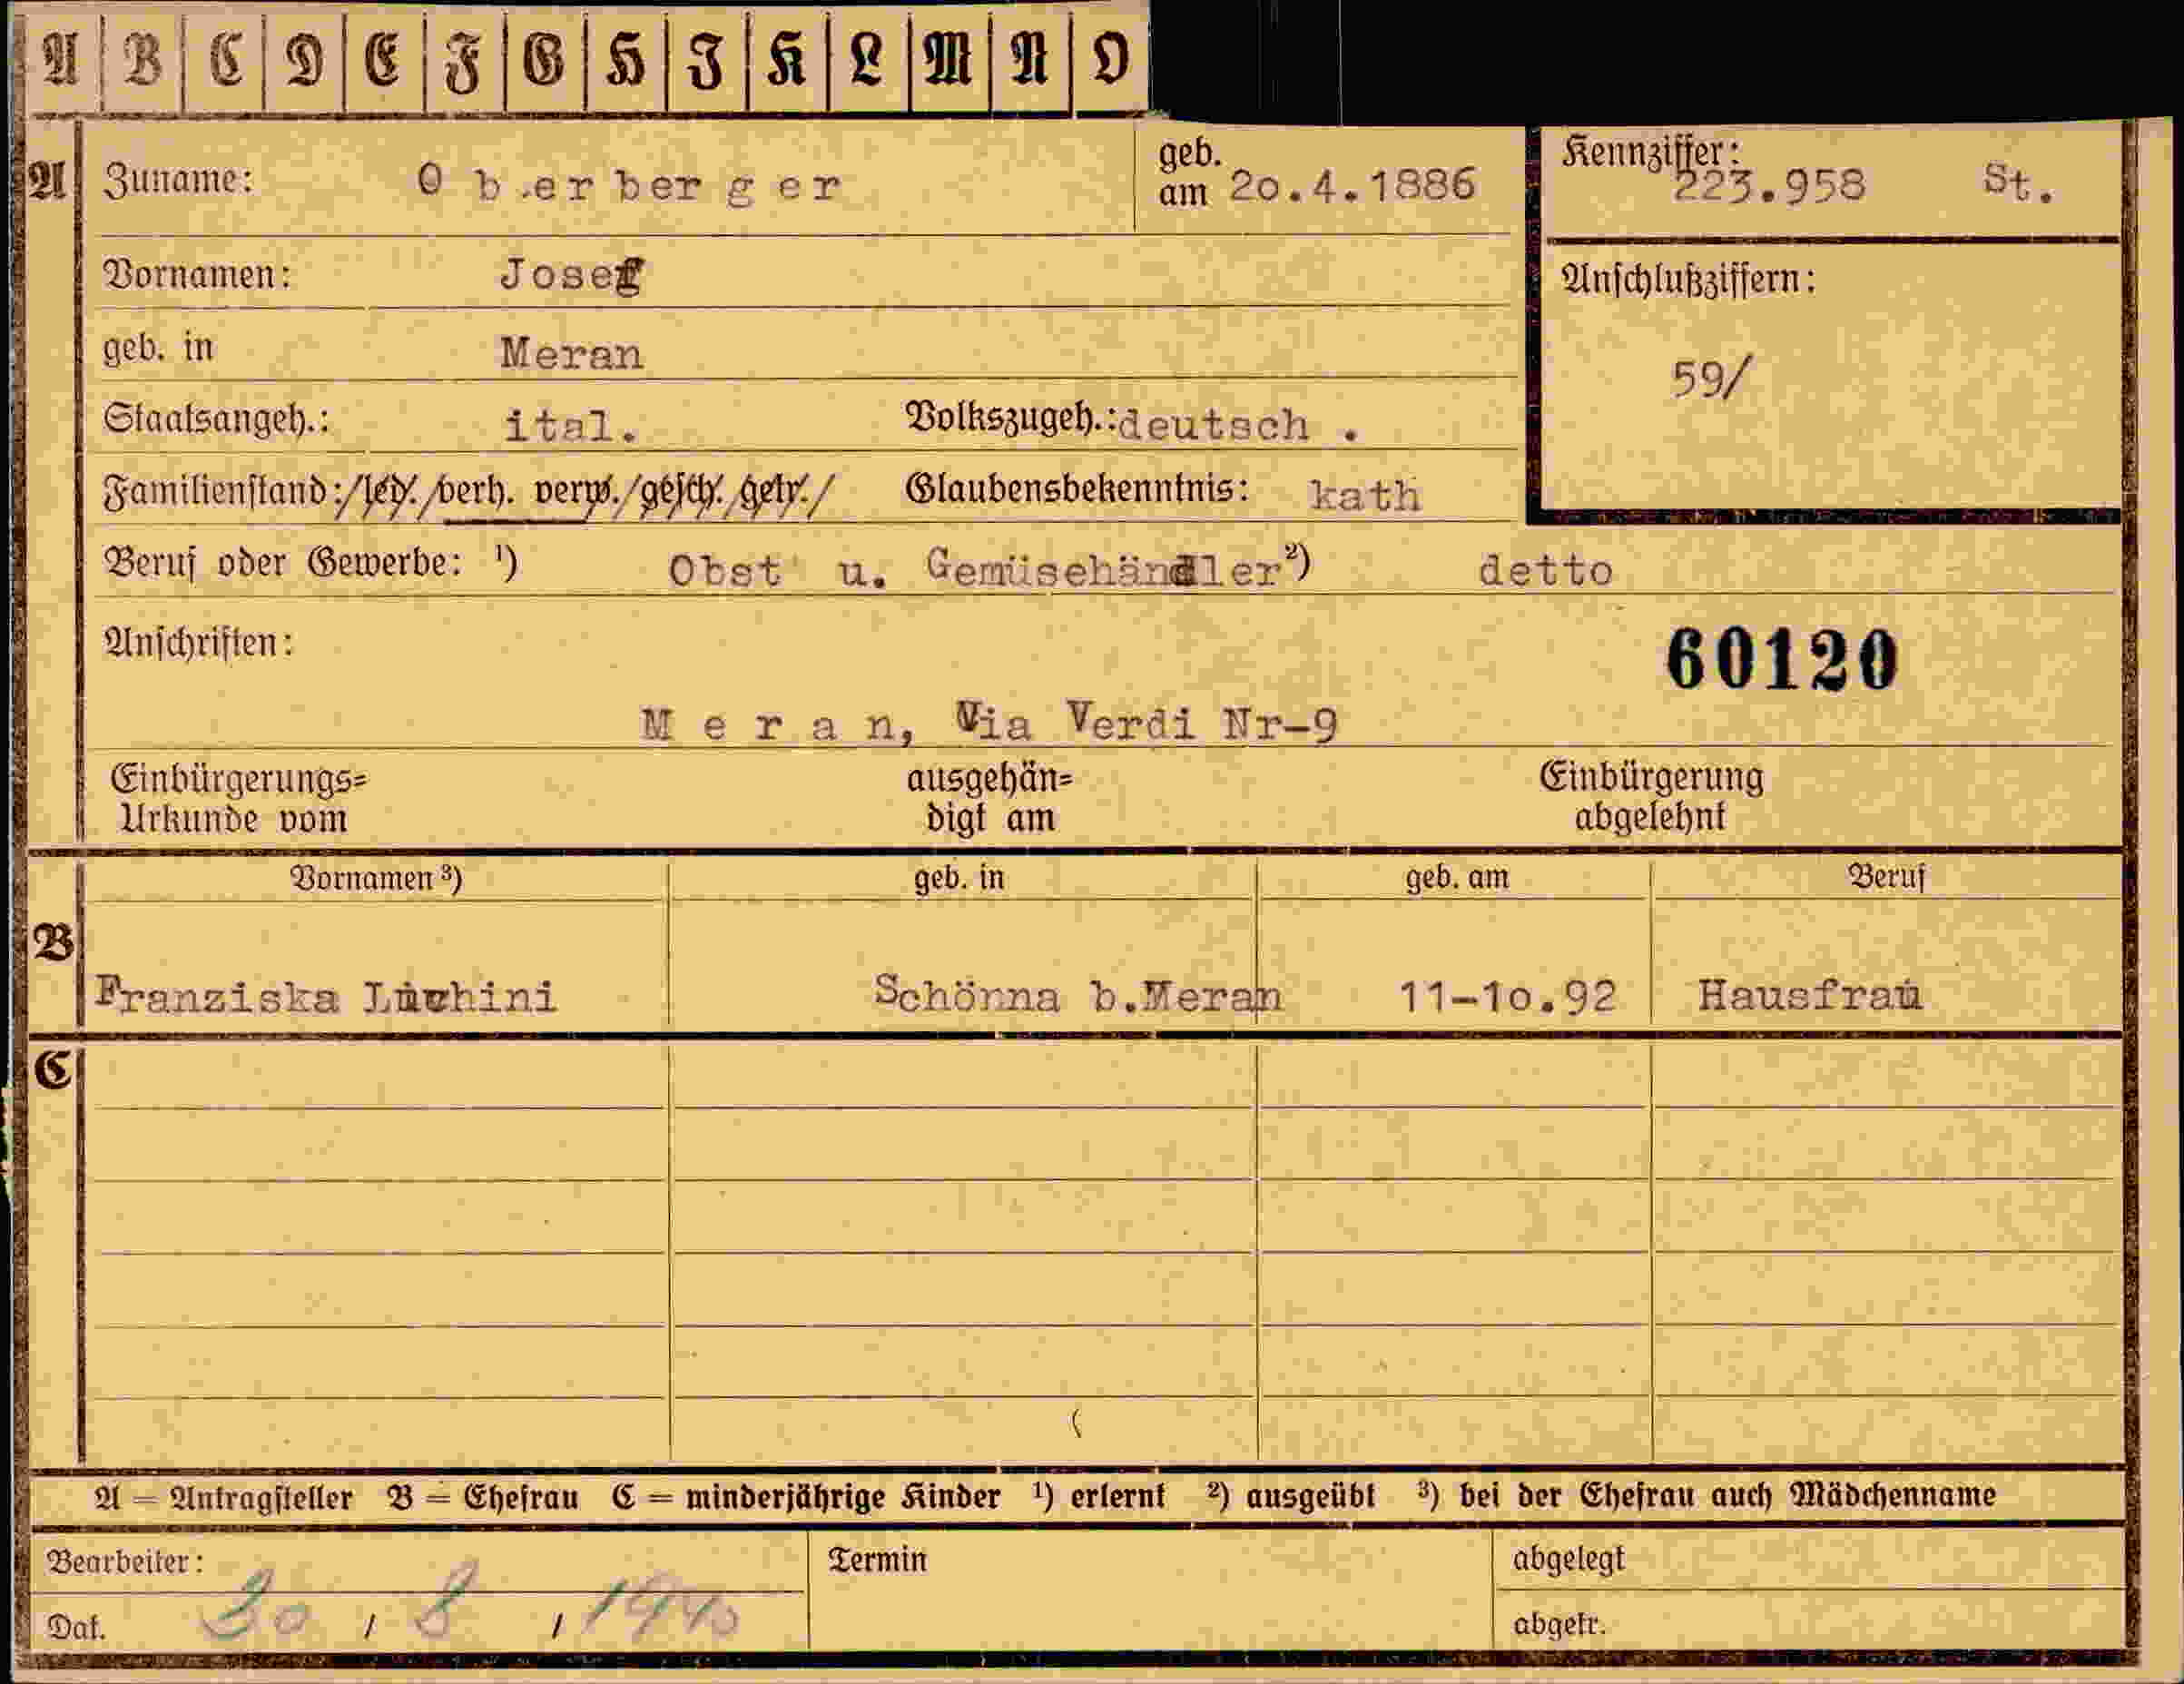 A B C D E F G H I K L M N O
A Zuname: Oberberger geb. am 20.4.1886 Kennziffer: 223.958 St.
Vornamen: Josef Anschlußziffern:
geb. in Meran 59/
Staatsangeh.: ital. Volkszugeh.: deutsch .
Familienstand: /led./verh. verw./gesch./getr./ Glaubensbekenntnis: kath
Beruf oder Gewerbe: ¹) Obst u. Gemüsehändler ²) detto
Anschriften: 60120
Meran, Via Verdi Nr-9
Einbürgerungs= ausgehän= Einbürgerung
Urkunde vom digt am abgelehnt
Vornamen ³) geb. in geb. am Beruf
B
Franziska Luchini Schönna b.Meran 11-10.92 Hausfrau
C
A = Antragsteller B = Ehefrau C = minderjährige Kinder ¹) erlernt ²) ausgeübt ³) bei der Ehefrau auch Mädchenname
Bearbeiter: Termin abgelegt
Dat. 30 / 8 / 1940 abgetr.